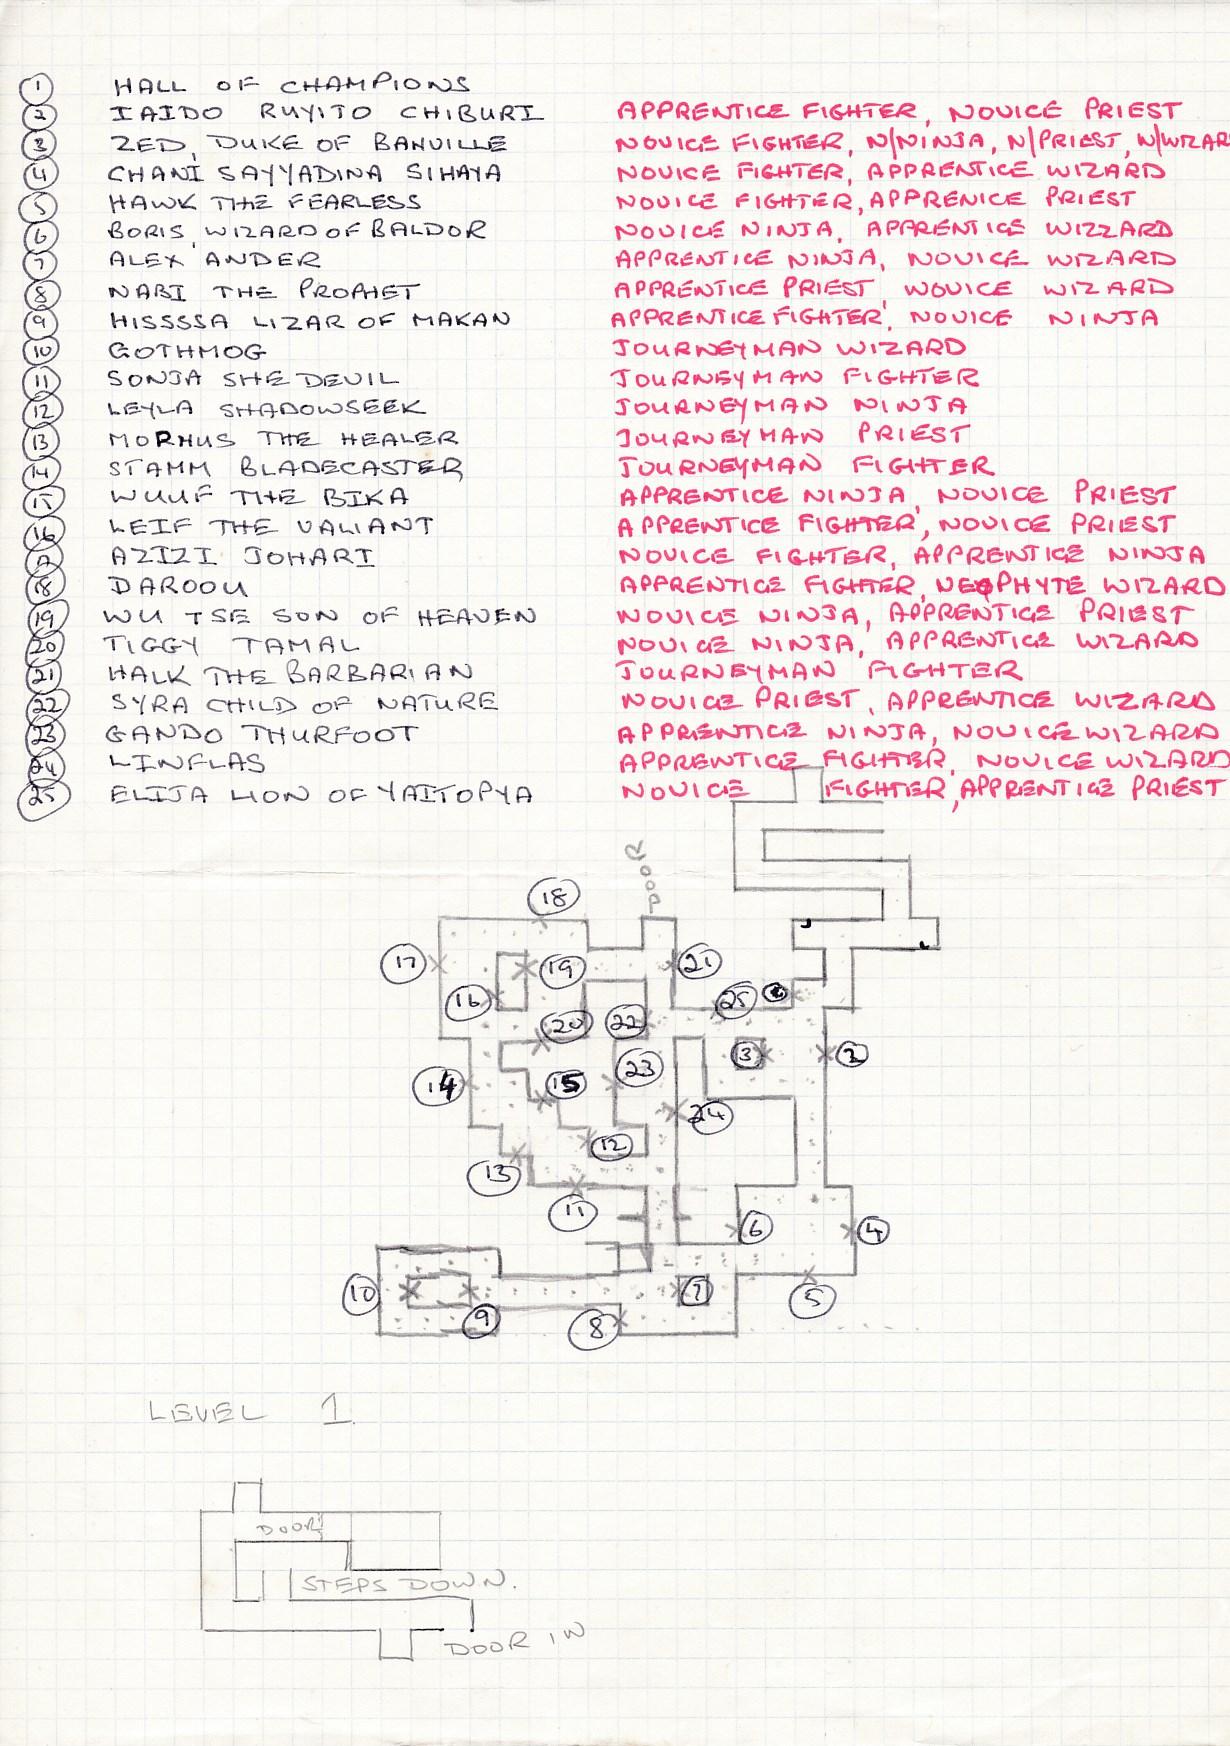 1 HALL OF CHAMPIONS
2 IAIDO RUYITO CHIBURI APPRENTICE FIGHTER, NOVICE PRIEST
3 ZED, DUKE OF BANVILLE NOVICE FIGHTER, N/NINJA, N/PRIEST, N/WIZAR
4 CHANI SAYYADINA SIHAYA NOVICE FIGHTER, APPRENTICE WIZARD
5 HAWK THE FEARLESS NOVICE FIGHTER, APPRENICE PRIEST
6 BORIS, WIZARD OF BALDOR NOVICE NINJA, APPRENTICE WIZZARD
7 ALEX ANDER APPRENTICE NINJA, NOVICE WIZARD
8 NABI THE PROPHET APPRENTICE PRIEST, WOVICE WIZARD
9 HISSSSA LIZAR OF MAKAN APPRENTICE FIGHTER, NOVICE NINJA
10 GOTHMOG JOURNEYMAN WIZARD
11 SONJA SHE DEVIL JOURNEYMAN FIGHTER
12 LEYLA SHADOWSEEK JOURNEYMAN NINJA
13 MOPHUS THE HEALER JOURNEYMAN PRIEST
14 STAMM BLADECASTER JOURNEYMAN FIGHTER
15 WUUF THE BIKA APPRENTICE NINJA, NOVICE PRIEST
16 LEIF THE VALIANT APPRENTICE FIGHTER, NOVICE PRIEST
17 AZIZI JOHARI NOVICE FIGHTER, APPRENTICE NINJA
18 DAROOU APPRENTICE FIGHTER, NEOPHYTE WIZARD
19 WU TSE SON OF HEAVEN NOVICE NINJA, APPRENTICE PRIEST
20 TIGGY TAMAL NOVICE NINJA, APPRENTICE WIZARD
21 HALK THE BARBARIAN JOURNEYMAN FIGHTER
22 SYRA CHILD OF NATURE NOVICE PRIEST, APPRENTICE WIZARD
23 GANDO THURFOOT APPRENTICE NINJA, NOVICE WIZARD
24 LINFLAS APPRENTICE FIGHTER, NOVICE WIZARD
25 ELIJA LION OF YAITOPYA NOVICE FIGHTER, APPRENTICE PRIEST
DOOR
18
17 19 21
16 25
20 22
3 2
14 15 23
24
12
13
11 6 4
10 9 7 5
8
LEVEL 1
DOOR
STEPS DOWN.
DOOR IN